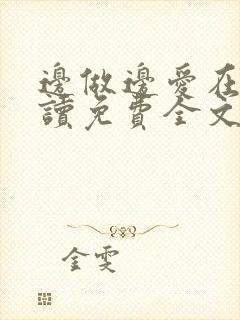 邊做邊愛在
讀免費全文
金雯